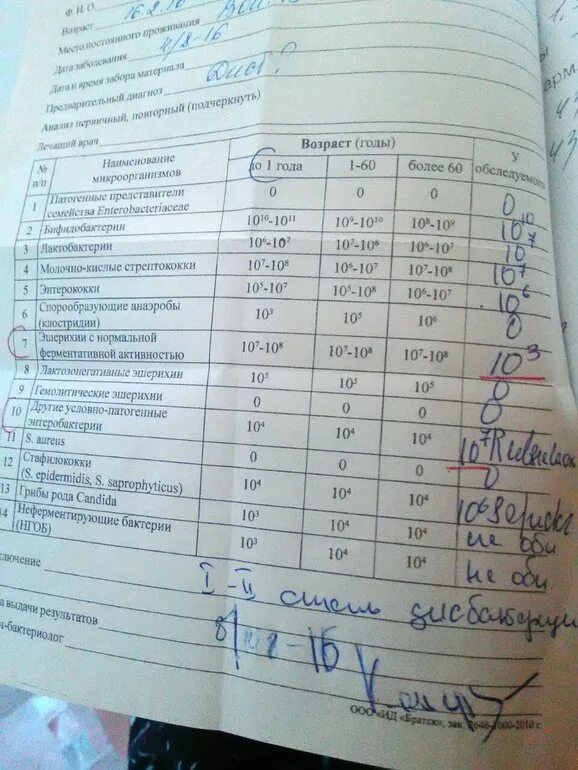 Ф. И. О.
Возраст 16.2.16
Место постоянного проживания
Дата заболевания 4/8-16
Дата и время забора материала
Предварительный диагноз Дисб?
Анализ первичный, повторный (подчеркнуть)
Лечащий врач
№ п/п Наименование микроорганизмов Возраст (годы) У обследуемого
до 1 года 1-60 более 60
1 Патогенные представители семейства Enterobacteriaceae 0 0 0 0
2 Бифидобактерии 10¹⁰-10¹¹ 10⁹-10¹⁰ 10⁸-10⁹ 10¹⁰
3 Лактобактерии 10⁶-10⁷ 10⁷-10⁸ 10⁶-10⁷ 10⁷
4 Молочно-кислые стрептококки 10⁷-10⁸ 10⁶-10⁷ 10⁷-10⁸ 10⁷
5 Энтерококки 10⁵-10⁷ 10⁵-10⁸ 10⁶-10⁷ 10⁶
6 Спорообразующие анаэробы (клостридии) 10³ 10⁵ 10⁶ 0
7 Эшерихии с нормальной ферментативной активностью 10⁷-10⁸ 10⁷-10⁸ 10⁷-10⁸ 10³
8 Лактозонегативные эшерихии 10⁵ 10⁵ 10⁵ 0
9 Гемолитические эшерихии 0 0 0 0
10 Другие условно-патогенные энтеробактерии 10⁴ 10⁴ 10⁴ 10⁷
11 S. aureus 0 0 0 0
12 Стафилококки (S. epidermidis, S. saprophyticus) 10⁴ 10⁴ 10⁴ 10⁶
13 Грибы рода Candida 10³ 10⁴ 10⁴ не обн
14 Неферментирующие бактерии (НГОБ) 10³ 10⁴ 10⁴ не обн.
ключение I-II степь дисбактери
а выдачи результатов 8/
ч-бактериолог
ООО «ИД «Братск», зак. 2646-1000-2010 г.